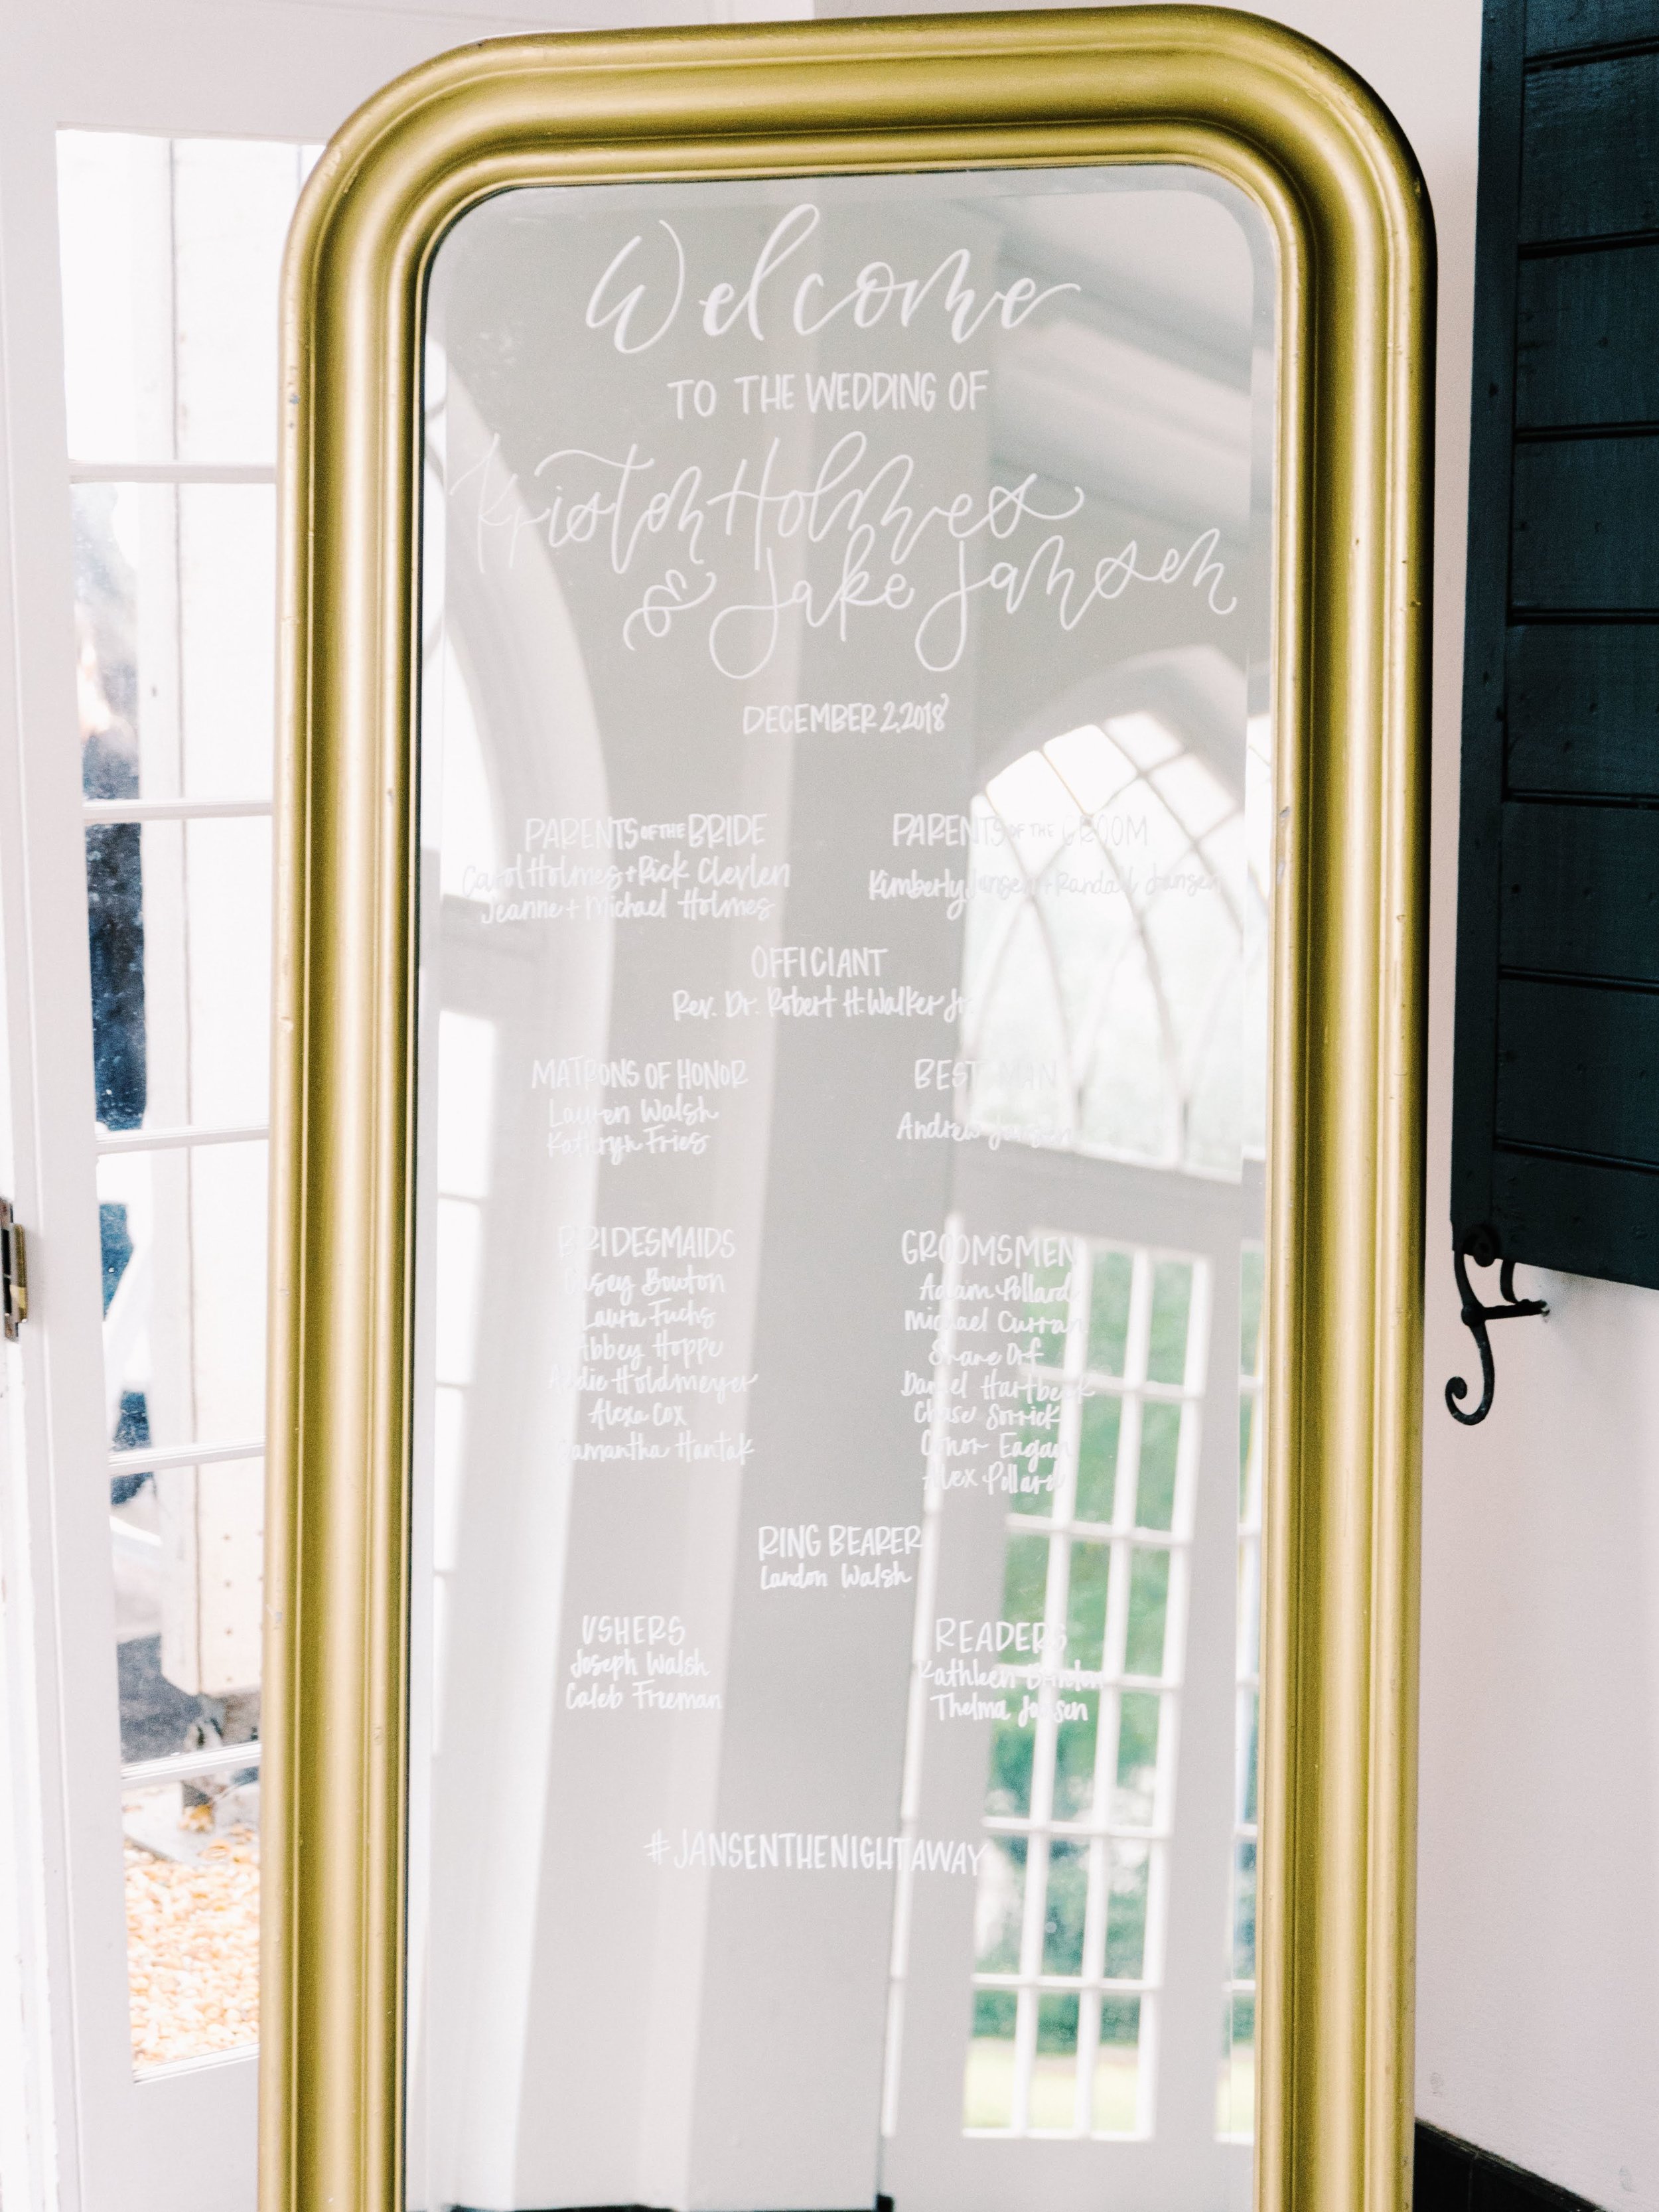 Welcome
TO THE WEDDING OF
Kristen Holmes
& Jake Jansen
DECEMBER 2, 2018
PARENTS OF THE BRIDE
Carol Holmes + Rick Clevlen
Jeanne + Michael Holmes
PARENTS OF THE GROOM
Kimberly Jansen + Randall Jansen
OFFICIANT
Rev. Dr. Robert H. Walker Jr.
MATRONS OF HONOR
Lauren Walsh
Kathryn Fries
BEST MAN
Andrew Jansen
BRIDESMAIDS
Bouton
Laura Fuchs
Abbey Hoppe
Addie Holdmeyer
Alexa Cox
Samantha Hantak
GROOMSMEN
Adam Pollard
Michael Curran
Shane Orf
Daniel Hartbeck
Chase Sorrick
Conor Eagan
Alex Pollard
RING BEARER
Landon Walsh
USHERS
Joseph Walsh
Caleb Freeman
READERS
Kathleen
Thelma Jansen
#JANSENTHENIGHTAWAY